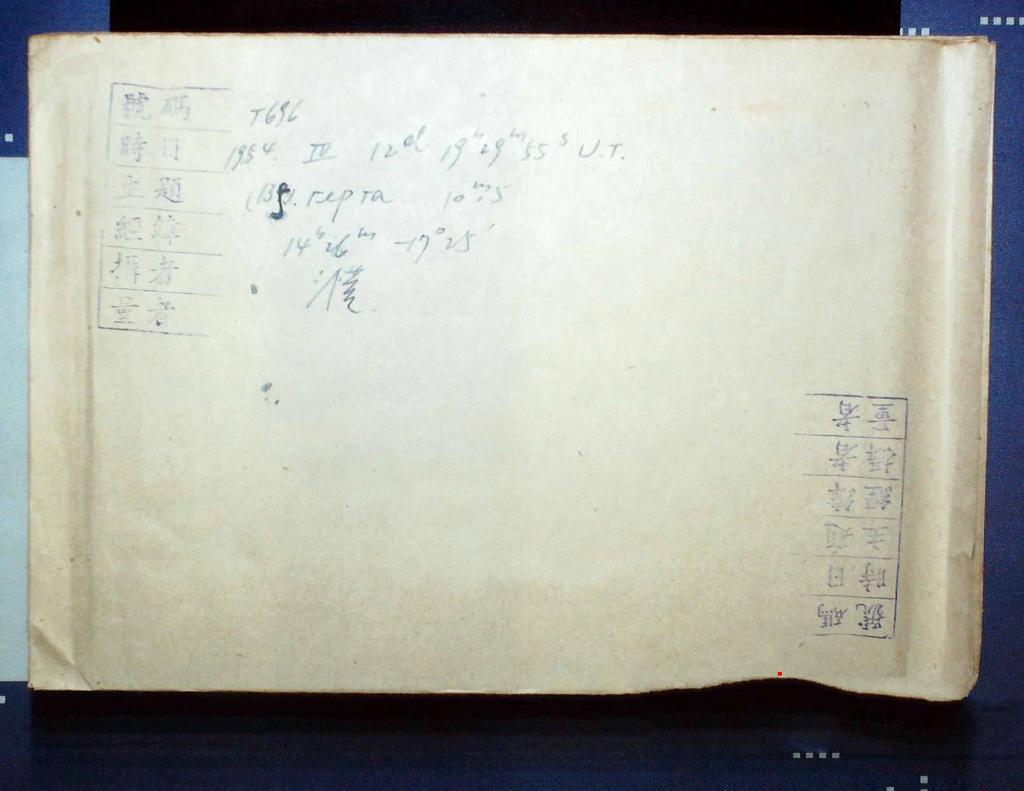 號碼 T696
時日 1954. IV 12d 19h29m55s U.T.
主題 герта 10m.5
經緯 14h26m -17°25'
攝者
量者
號碼
時日
主題
經緯
攝者
量者